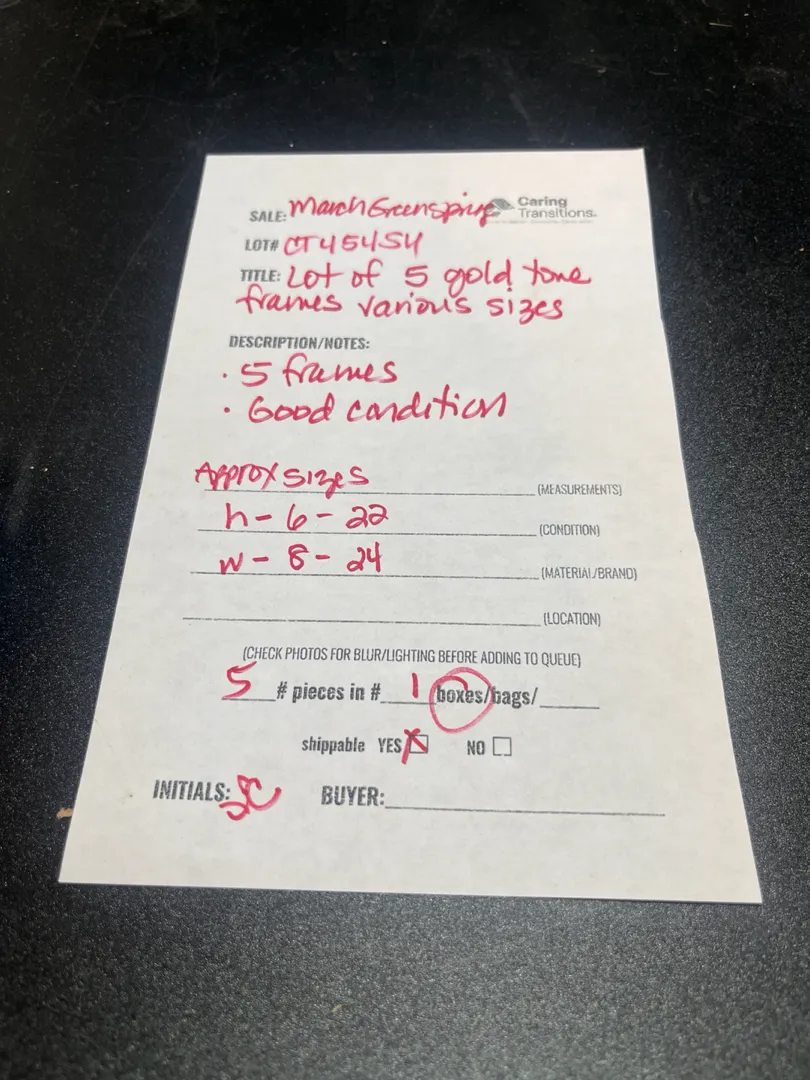 SALE: March Greenspring Caring
Transitions.
LOT# CT45454
TITLE: Lot of 5 gold tone
frames various sizes
DESCRIPTION/NOTES:
· 5 frames
· Good condition
Approx sizes (MEASUREMENTS)
h - 6 - 22 (CONDITION)
w - 8 - 24 (MATERIAL/BRAND)
(LOCATION)
(CHECK PHOTOS FOR BLUR/LIGHTING BEFORE ADDING TO QUEUE)
5 # pieces in # 1 boxes/bags/
shippable YES X NO
INITIALS: SC BUYER: